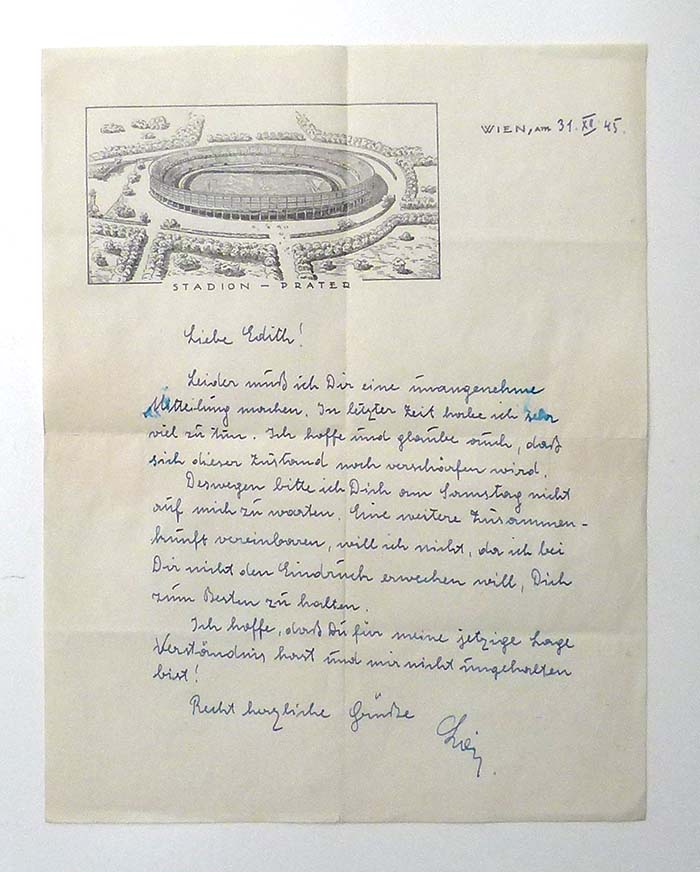 WIEN, am 31. XII. 45.
STADION – PRATER
Liebe Edith!
Leider muß ich Dir eine unangenehme
Mitteilung machen. In letzter Zeit habe ich sehr
viel zu tun. Ich hoffe und glaube auch, daß
sich dieser Zustand noch verschärfen wird.
Deswegen bitte ich Dich am Samstag nicht
auf mich zu warten. Eine weitere Zusammen-
kunft vereinbaren, will ich nicht, da ich bei
Dir nicht den Eindruck erwecken will, Dich
zum Besten zu halten.
Ich hoffe, daß Du für meine jetzige Lage
Verständnis hast und mir nicht ungehalten
bist!
Recht herzliche Grüße